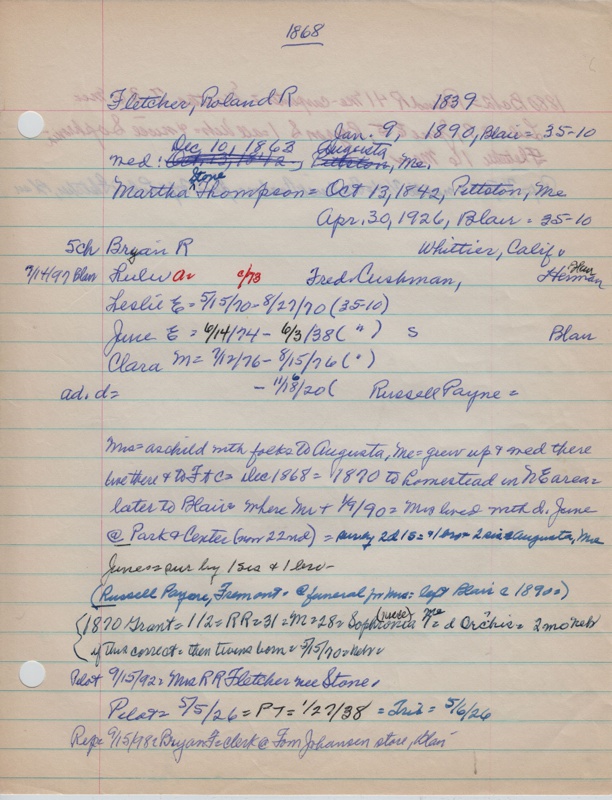 1868
Fletcher, Roland R 1839
Jan. 9, 1890, Blair = 35-10
Dec 10, 1863 Augusta
med: Oct 13, 1842, Pittston, Me.
Stone
Martha Thompson = Oct 13, 1842, Pittston, Me
Apr. 30, 1926, Blair = 35-10
5ch Bryan R Whittier, Calif
7/14/97 Blair Lulu A= c/73 Fred Cushman, Herman
Leslie E = 5/15/70 - 8/27/70 (35-10)
June E = 6/14/74 - 6/3/38 ( " ) S Blair
Clara M = 7/12/76 - 8/15/76 ( " )
ad. d = - 11/18/20 ( Russell Payne =
Mrs = as child with folks to Augusta, Me = grew up & med there
live there & to Ft C = Dec 1868 = 1870 to homestead in NE area =
later to Blair = where Mr + 1/9/90 = Mrs lived with d. June
@ Park & Center (now 22nd) = surv by 2d 1s = 4 bro = 2 sis @ Augusta, Me
June = sur by 1 sis & 1 bro -
(Russell Payne, Fremont = @ funeral for Mrs = left Blair c 1890 =)
(1870 Grant = 112 = RR = 31 = M = 28 = Sophronia (niece) Me = d Orchis = 2mo Neb
if this correct = then twins born = 5/15/70 = Neb =
Pilot 9/15/92 = Mrs RR Fletcher nee Stone,
Pilot = 5/5/26 = PT = 1/27/38 = Trib = 5/6/26
Rep = 9/15/98 = Bryan F = clerk @ Tom Johansen store, Blair